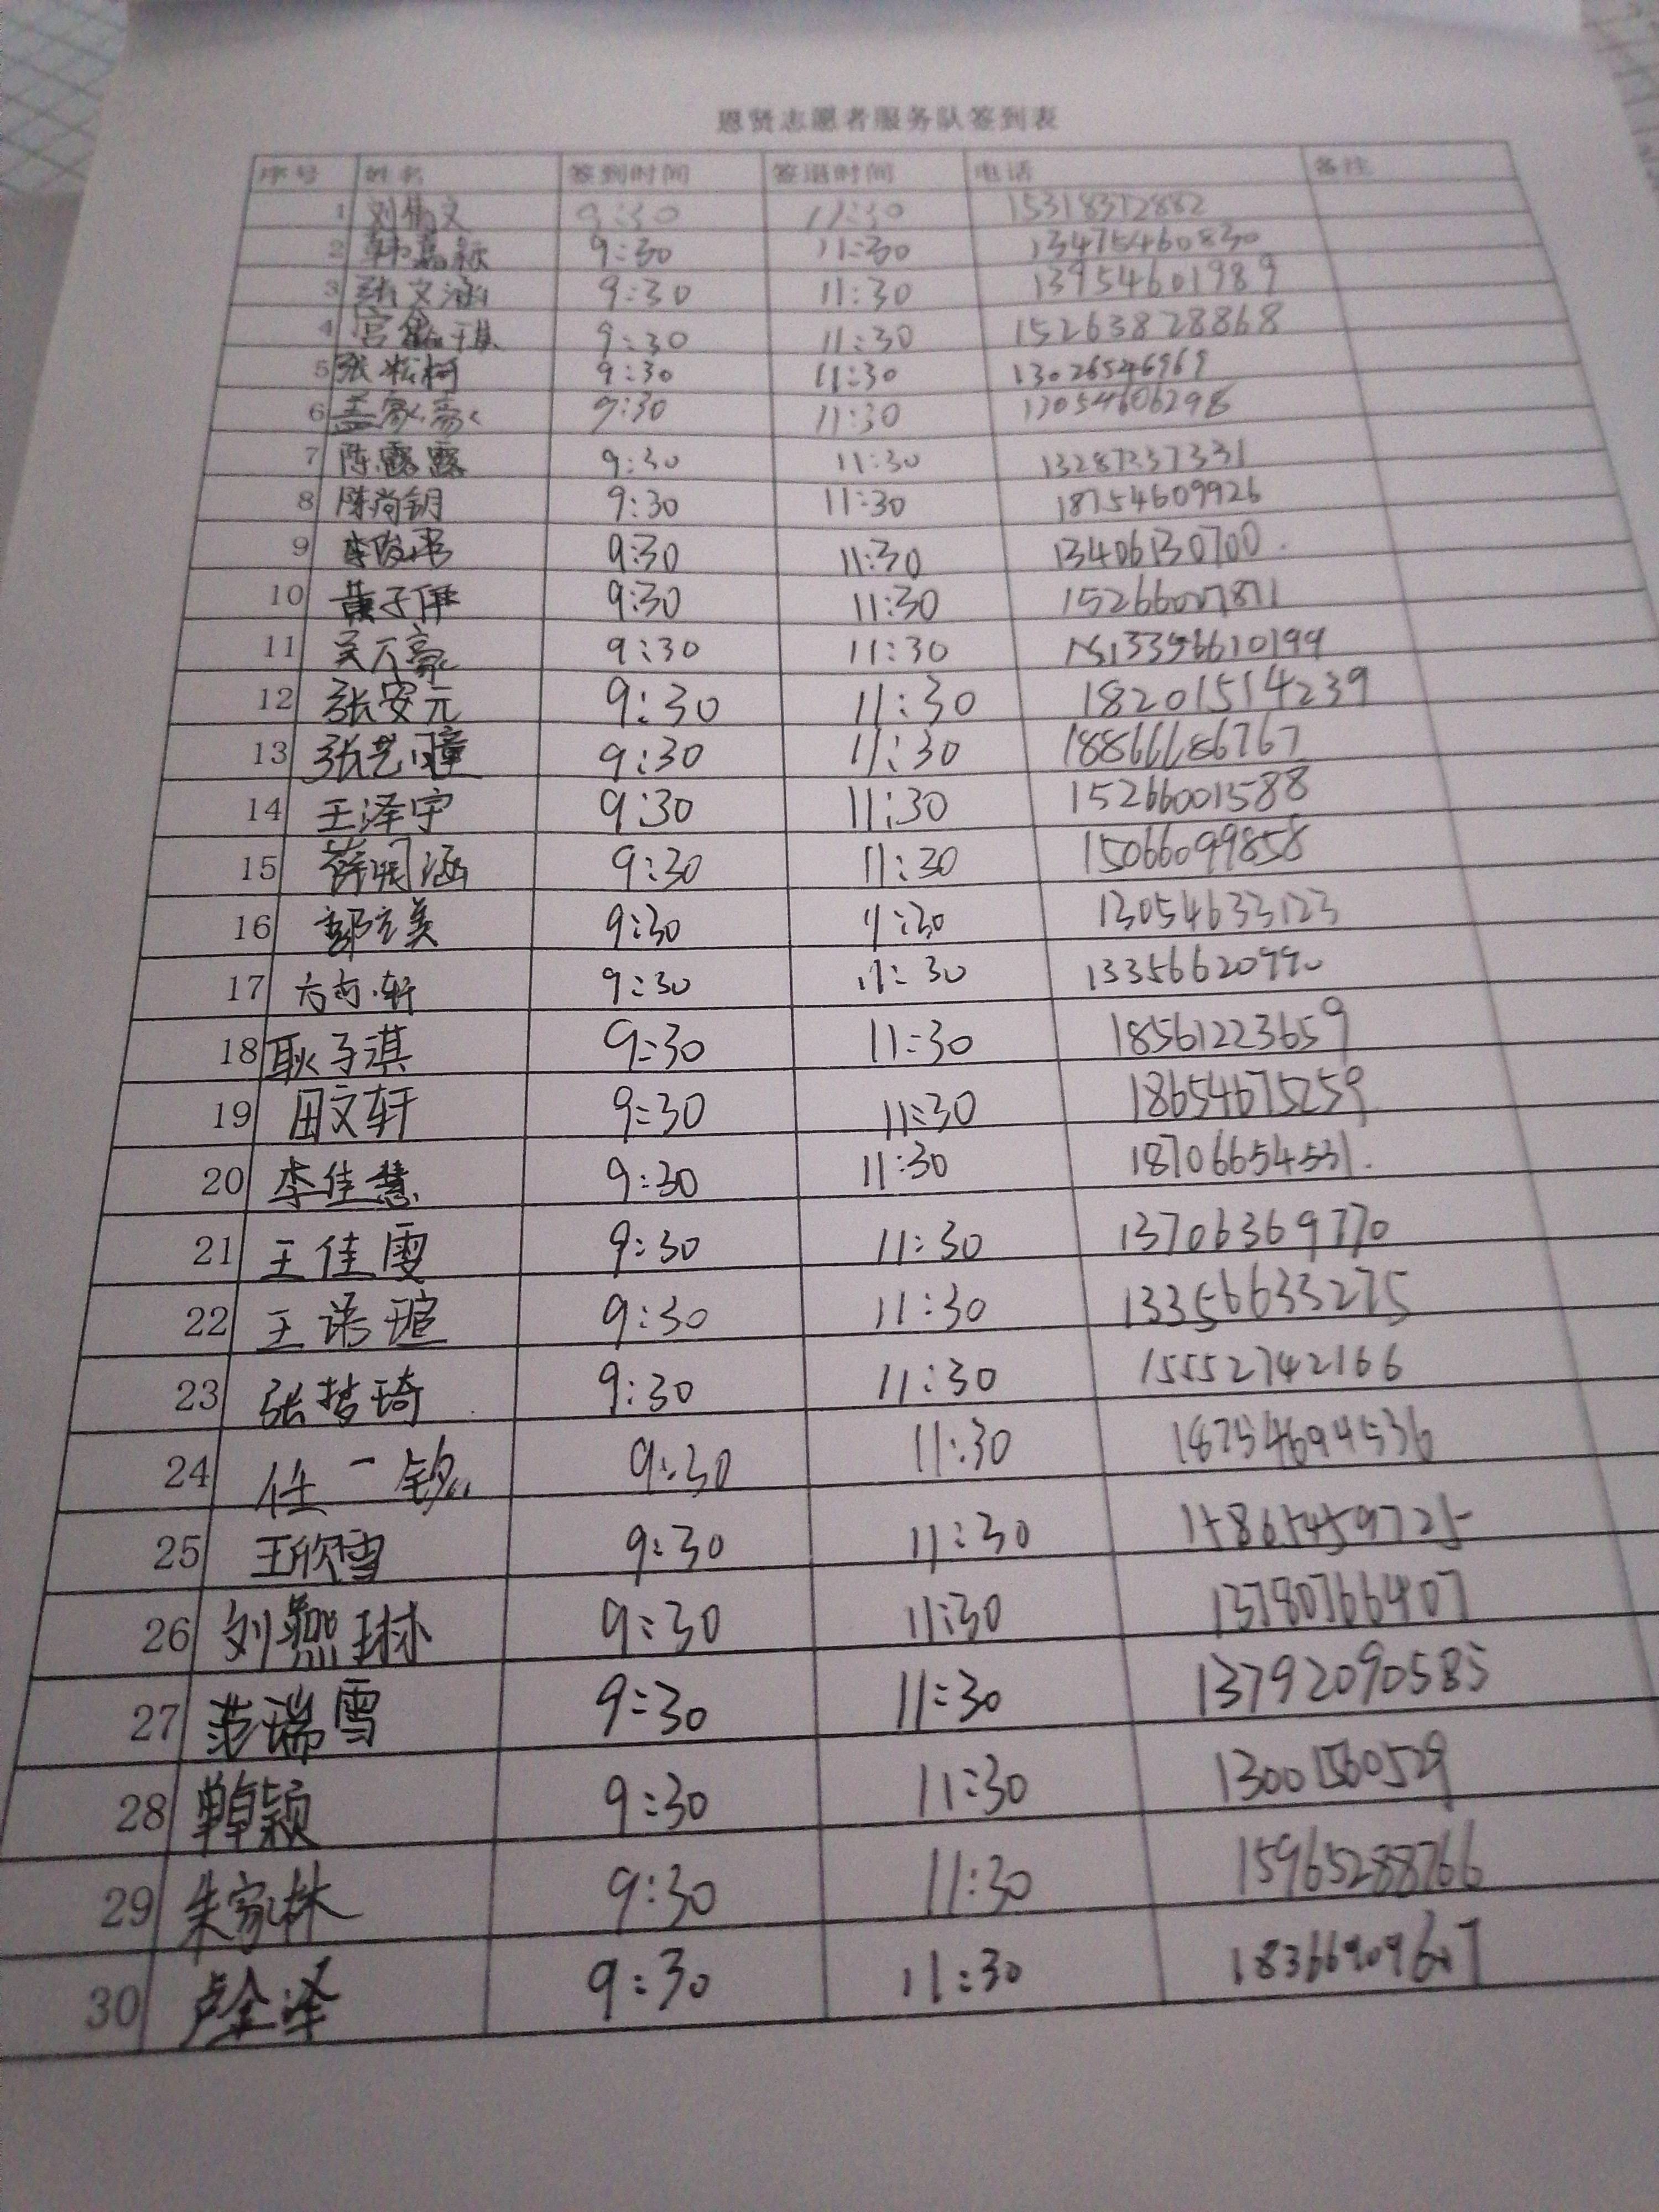 恩贤志愿者服务队签到表
序号 姓名 签到时间 签退时间 电话 备注
1 刘倩文 9:30 11:30 15318372882
2 韩嘉颖 9:30 11:30 13475460830
3 张文涵 9:30 11:30 13954601989
4 宫 琪 9:30 11:30 15263828868
5 张淞柯 9:30 11:30 13026546969
6 孟家豪 9:30 11:30 13054606298
7 陈露露 9:30 11:30 13287337331
8 陈尚钥 9:30 11:30 18754609926
9 李 9:30 11:30 13406130700
10 黄子伊 9:30 11:30 15266007871
11 吴万豪 9:30 11:30
12 张安元 9:30 11:30 18201514239
13 张艺瞳 9:30 11:30 18866686767
14 王泽宇 9:30 11:30 15266001588
15 薛明涵 9:30 11:30 15066099858
16 彭立美 9:30 11:30 13054633123
17 轩 9:30 11:30 13356620990
18 耿子淇 9:30 11:30 18561223659
19 田文轩 9:30 11:30 18654675259
20 李佳慧 9:30 11:30 18706654531
21 王佳雯 9:30 11:30 13706369770
22 王诺瑄 9:30 11:30 13356633275
23 张梦琦 9:30 11:30 15552742166
24 任一铭 9:30 11:30 18754694536
25 王欣雪 9:30 11:30 15865459725
26 刘燕琳 9:30 11:30 13780766407
27 范瑞雪 9:30 11:30 13792090585
28 单卓颖 9:30 11:30 13001560529
29 朱家林 9:30 11:30 15965288766
30 卢金泽 9:30 11:30 18366909607